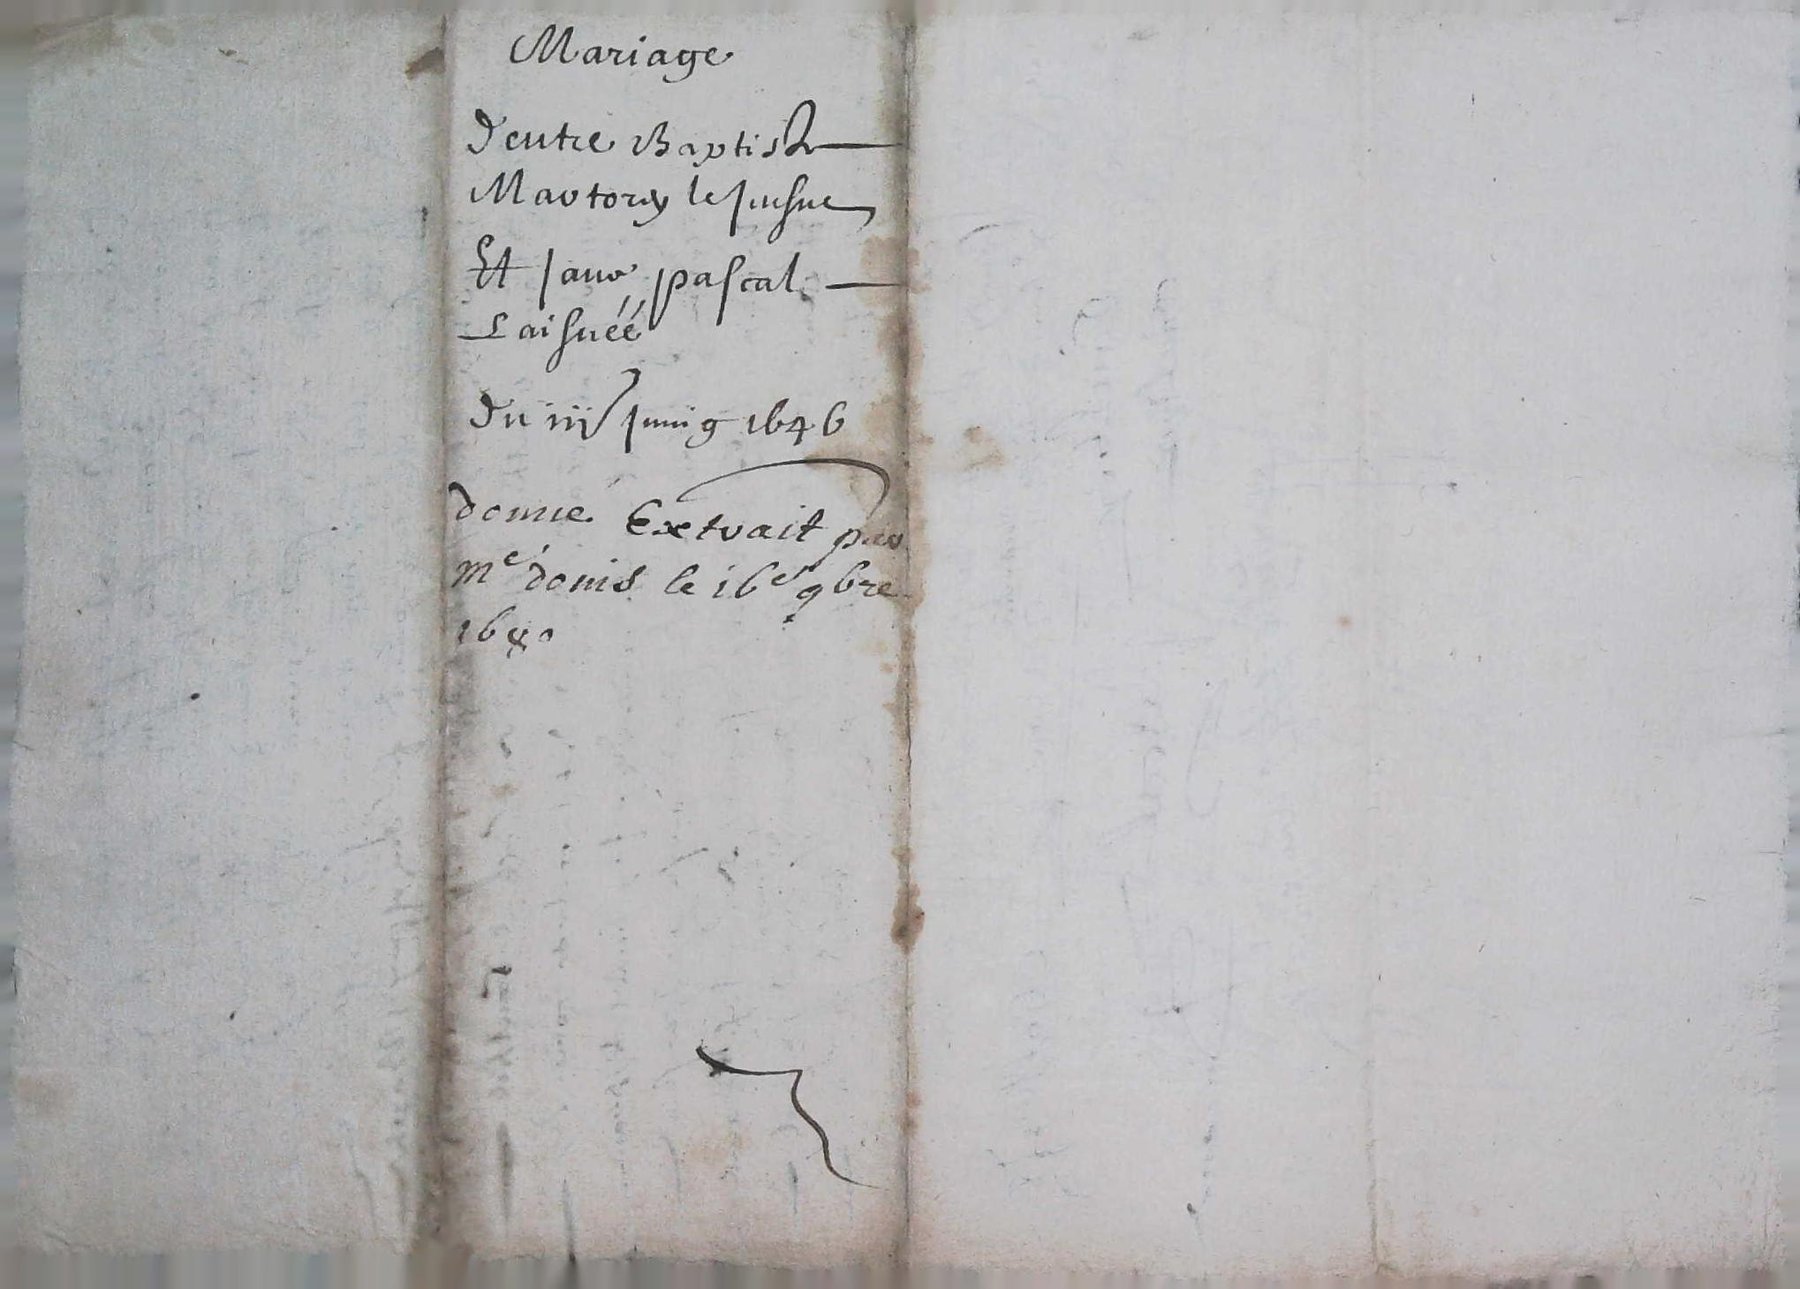 Mariage
D'entre Baptiste
Martory le Jusne
Et Jane pascal
L'aisnéé
Du iiij Juing 1646
donné Extrait par
Me donis le 16e 9bre
1680